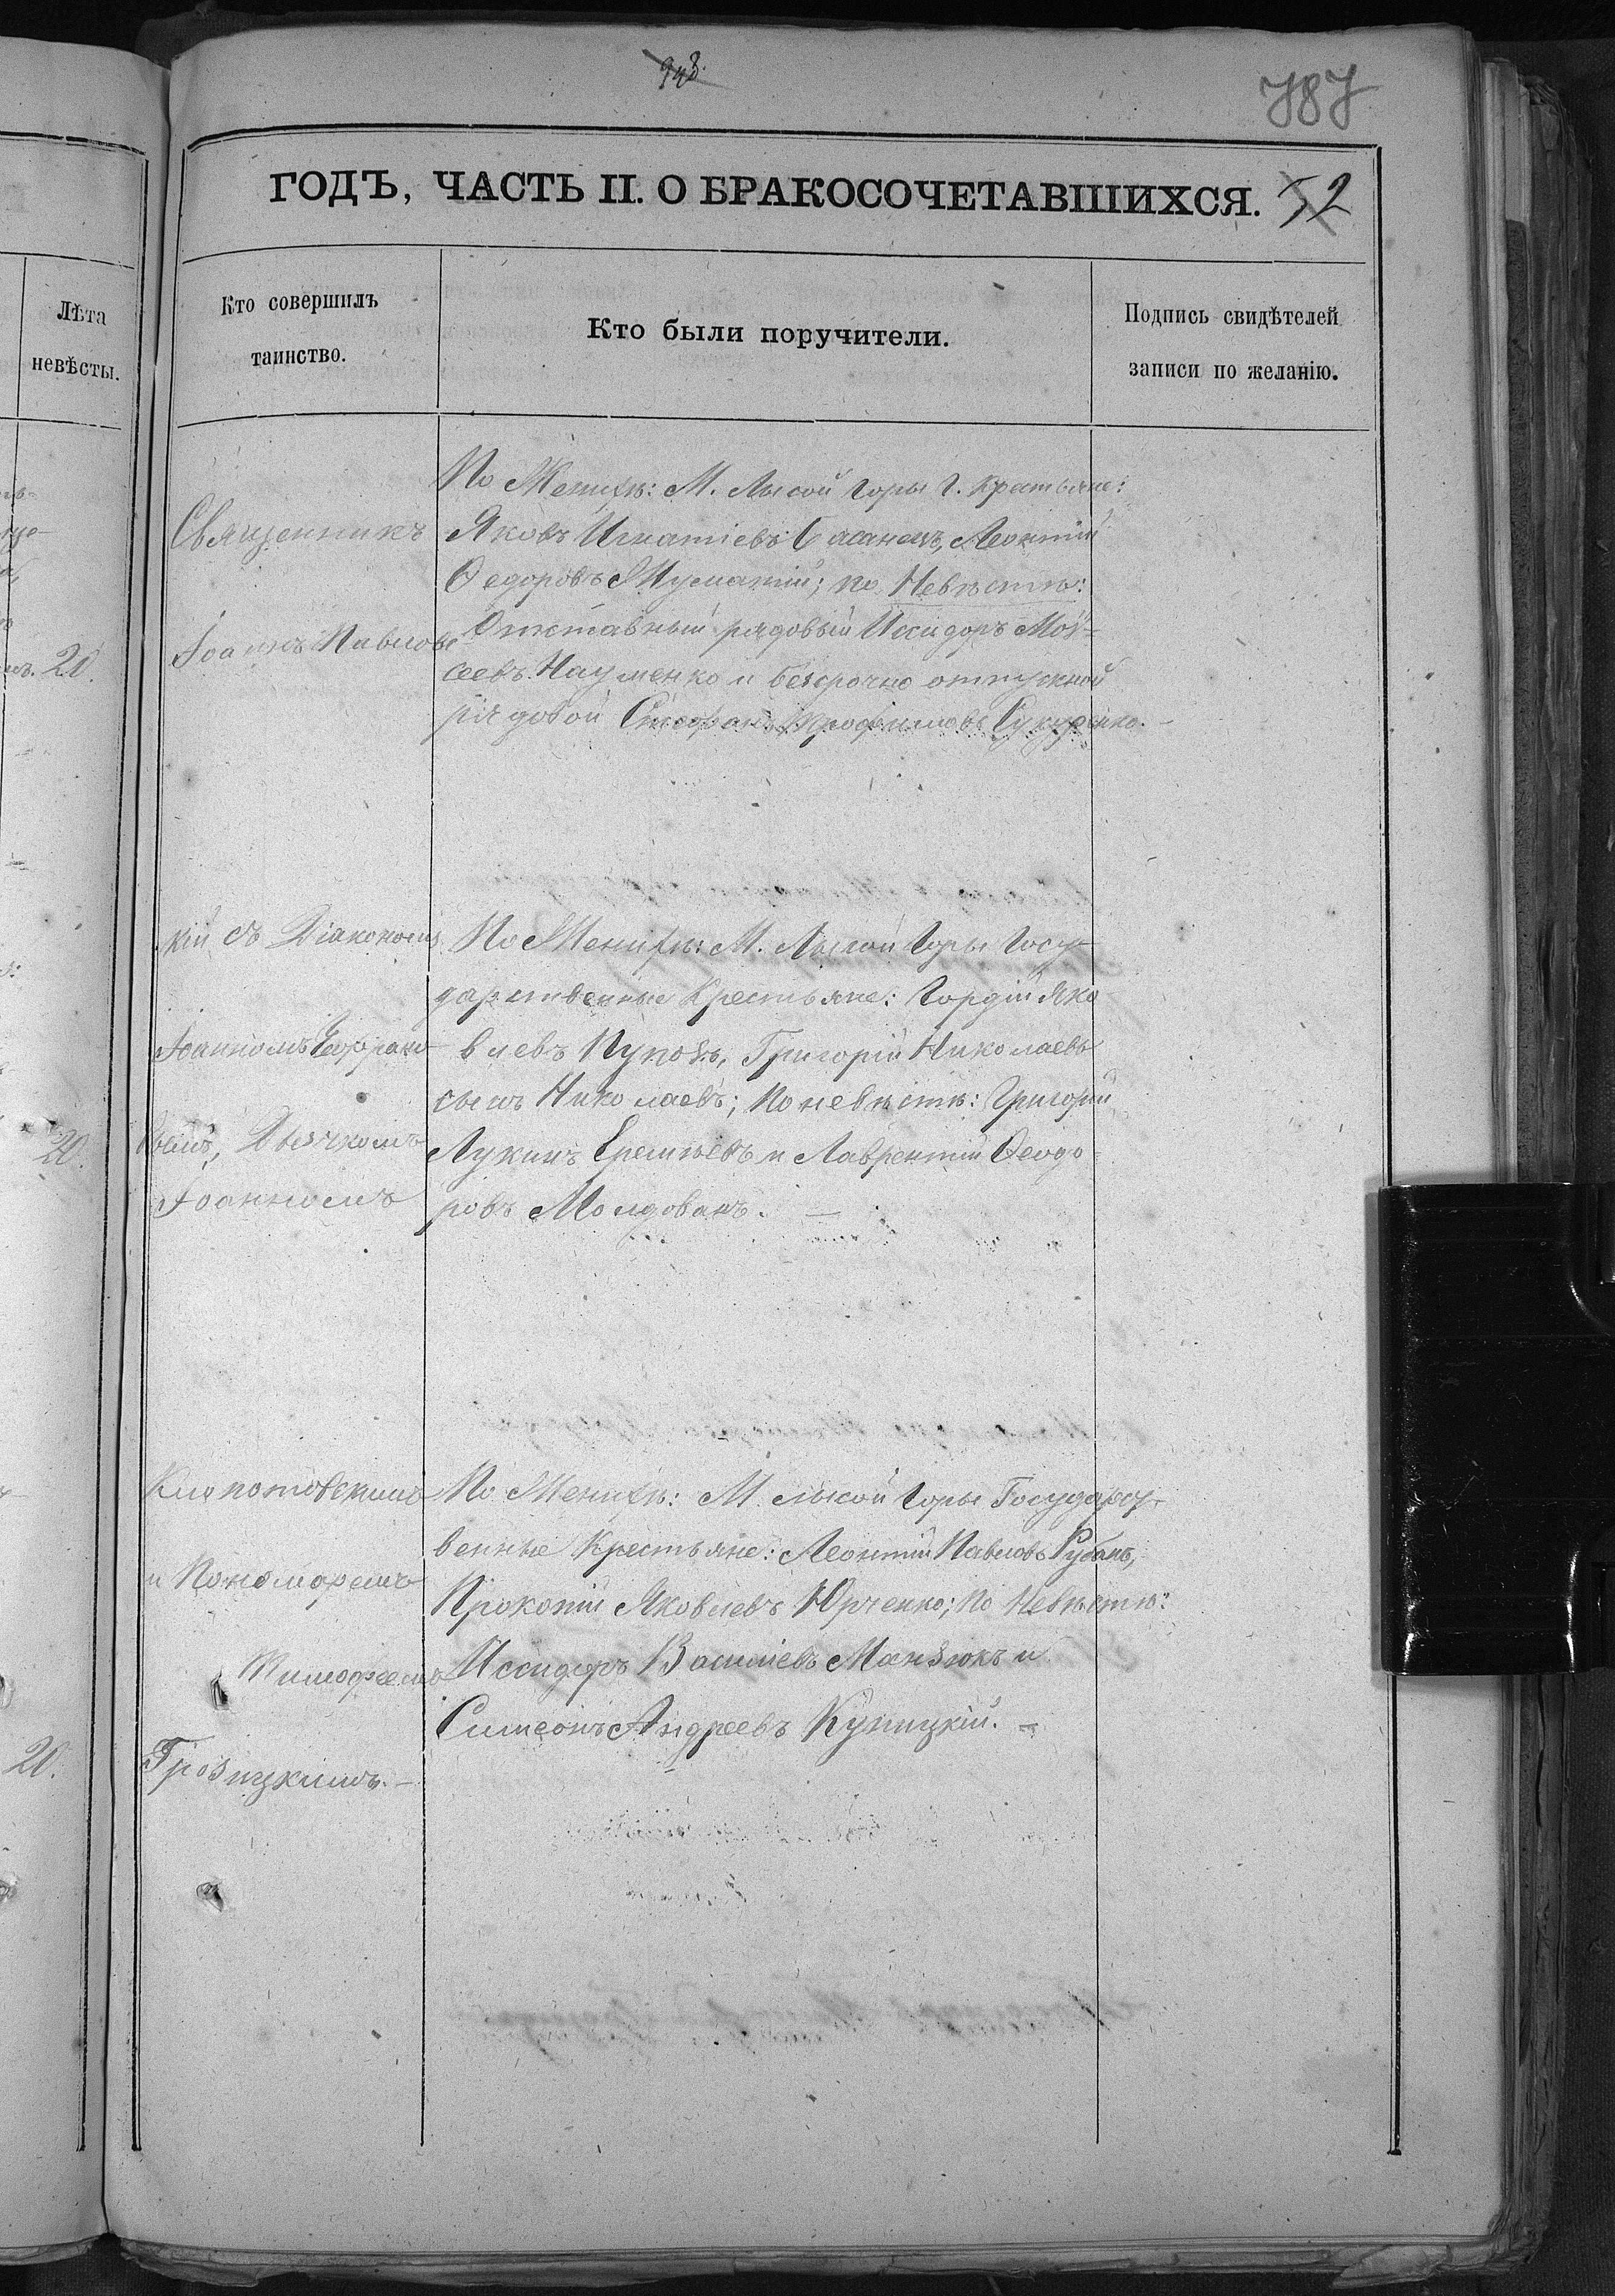 943.
787
ГОДЪ, ЧАСТЬ II. О БРАКОСОЧЕТАВШИХСЯ. 52
Лѣта
невѣсты.
Кто совершилъ
таинство.
Кто были поручители.
Подпись свидѣтелей
записи по желанію.
20.
20.
20.
Священникъ
Іоаннъ Павлов
кій съ Діакономъ
Іоанномъ
Дьячкомъ
Іоанномъ
Клопотовскимъ
и Пономаремъ
Тимофеемъ
Грозицкимъ. –
По Женихѣ: М. Лысой Горы Г. Крестьяне:
Яковъ Игнатіевъ Басанецъ, Леонтій
Ѳедоровъ Мусматій; по Невѣстѣ:
Отставный рядовый Исидоръ Мой-
сеевъ Науменко и безсрочно отпускной
рядовой Стефанъ Трофимовъ
По Женихѣ: М. Лысой Горы Госу-
дарственные Крестьяне: Гордій Яко-
влевъ Григорій Николаевъ
сынъ Николаевъ; по невѣстѣ: Григорій
Лукинъ Еремѣевъ и Лаврентій Ѳеодо-
ровъ Молдованъ. –
По Женихѣ: М. Лысой Горы Государст-
венные Крестьяне: Леонтій Павловъ Рубанъ,
Прокопій Яковлевъ Юрченко; по Невѣстѣ:
Исидоръ Василіевъ Манзюкъ и
Симеонъ Андреевъ Куницкій. –